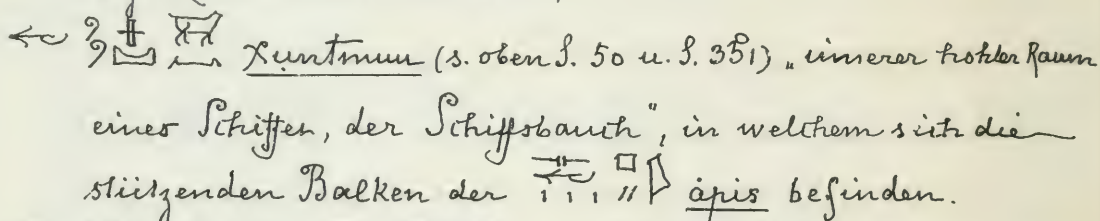 Xuntmuu (s. oben S. 50 u. S. 351) „innerer hohler Raum
eines Schiffes, der Schiffsbauch", in welchem sich die
stützenden Balken der ȧpis befinden.